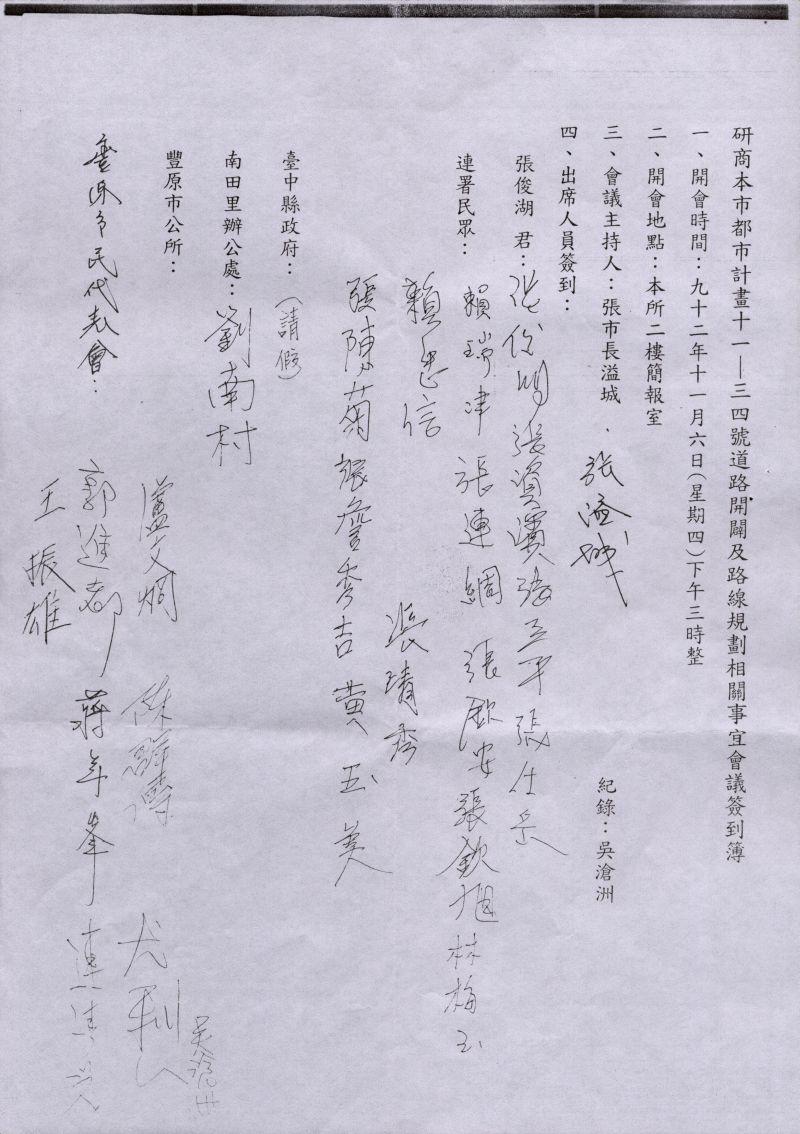 研商本市都市計畫十一—三四號道路開闢及路線規劃相關事宜會議簽到簿
一、開會時間：九十二年十一月六日(星期四)下午三時整
二、開會地點：本所二樓簡報室
三、會議主持人：張市長溢城．張溢城
紀錄：吳滄洲
四、出席人員簽到：
張俊湖 君：張資濱 張仕岳
連署民眾：賴瑞津 張連綢 張欽安 張欽旭 林梅玉
賴忠信 張靖秀
張陳菊 張詹秀吉 黃玉美
臺中縣政府：(請假)
南田里辦公處：劉南村
豐原市公所：盧文炯 吳滄洲
豐原市民代表會：郭進都 蔣年峯
王振雄